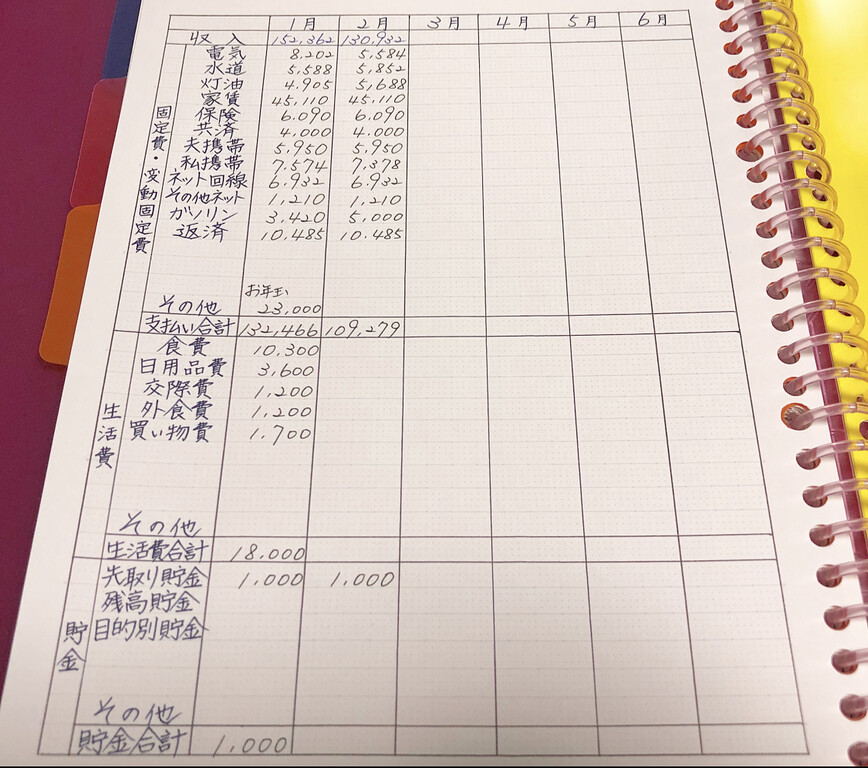 1月 2月 3月 4月 5月 6月
収入 152,362 130,932
固定費・変動固定費
電気 8,202 5,584
水道 5,588 5,852
灯油 4,905 5,688
家賃 45,110 45,110
保険 6,090 6,090
共済 4,000 4,000
夫携帯 5,950 5,950
私携帯 7,574 7,378
ネット回線 6,932 6,932
その他ネット 1,210 1,210
ガソリン 3,420 5,000
返済 10,485 10,485
お年玉
その他 23,000
支払い合計 132,466 109,279
生活費
食費 10,300
日用品費 3,600
交際費 1,200
外食費 1,200
買い物費 1,700
その他
生活費合計 18,000
貯金
先取り貯金 1,000 1,000
残高貯金
目的別貯金
その他
貯金合計 1,000